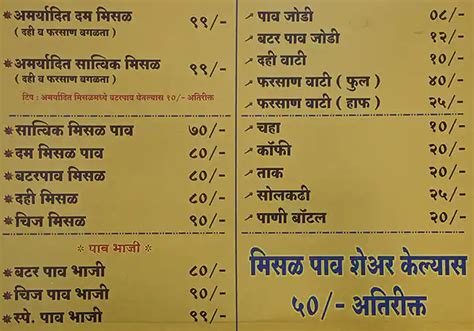 * अमर्यादित दम मिसळ ९९/-
( दही व फरसाण वगळता )
* अमर्यादित सात्विक मिसळ ९९/-
( दही व फरसाण वगळता )
टिप : अमर्यादित मिसळमध्ये बटरपाव घेतल्यास १०/- अतिरीक्त
* सात्विक मिसळ पाव ७०/-
* दम मिसळ पाव ८०/-
* बटरपाव मिसळ ८०/-
* दही मिसळ ८०/-
* चिज मिसळ ९०/-
* पाव भाजी *
* बटर पाव भाजी ८०/-
* चिज पाव भाजी ९०/-
* स्पे. पाव भाजी ९९/-
* पाव जोडी ०८/-
* बटर पाव जोडी १२/-
* दही वाटी १०/-
* फरसाण वाटी ( फुल ) ४०/-
* फरसाण वाटी ( हाफ ) २५/-
* चहा १०/-
* कॉफी २०/-
* ताक २०/-
* सोलकढी २५/-
* पाणी बॉटल २०/-
मिसळ पाव शेअर केल्यास
५०/- अतिरीक्त